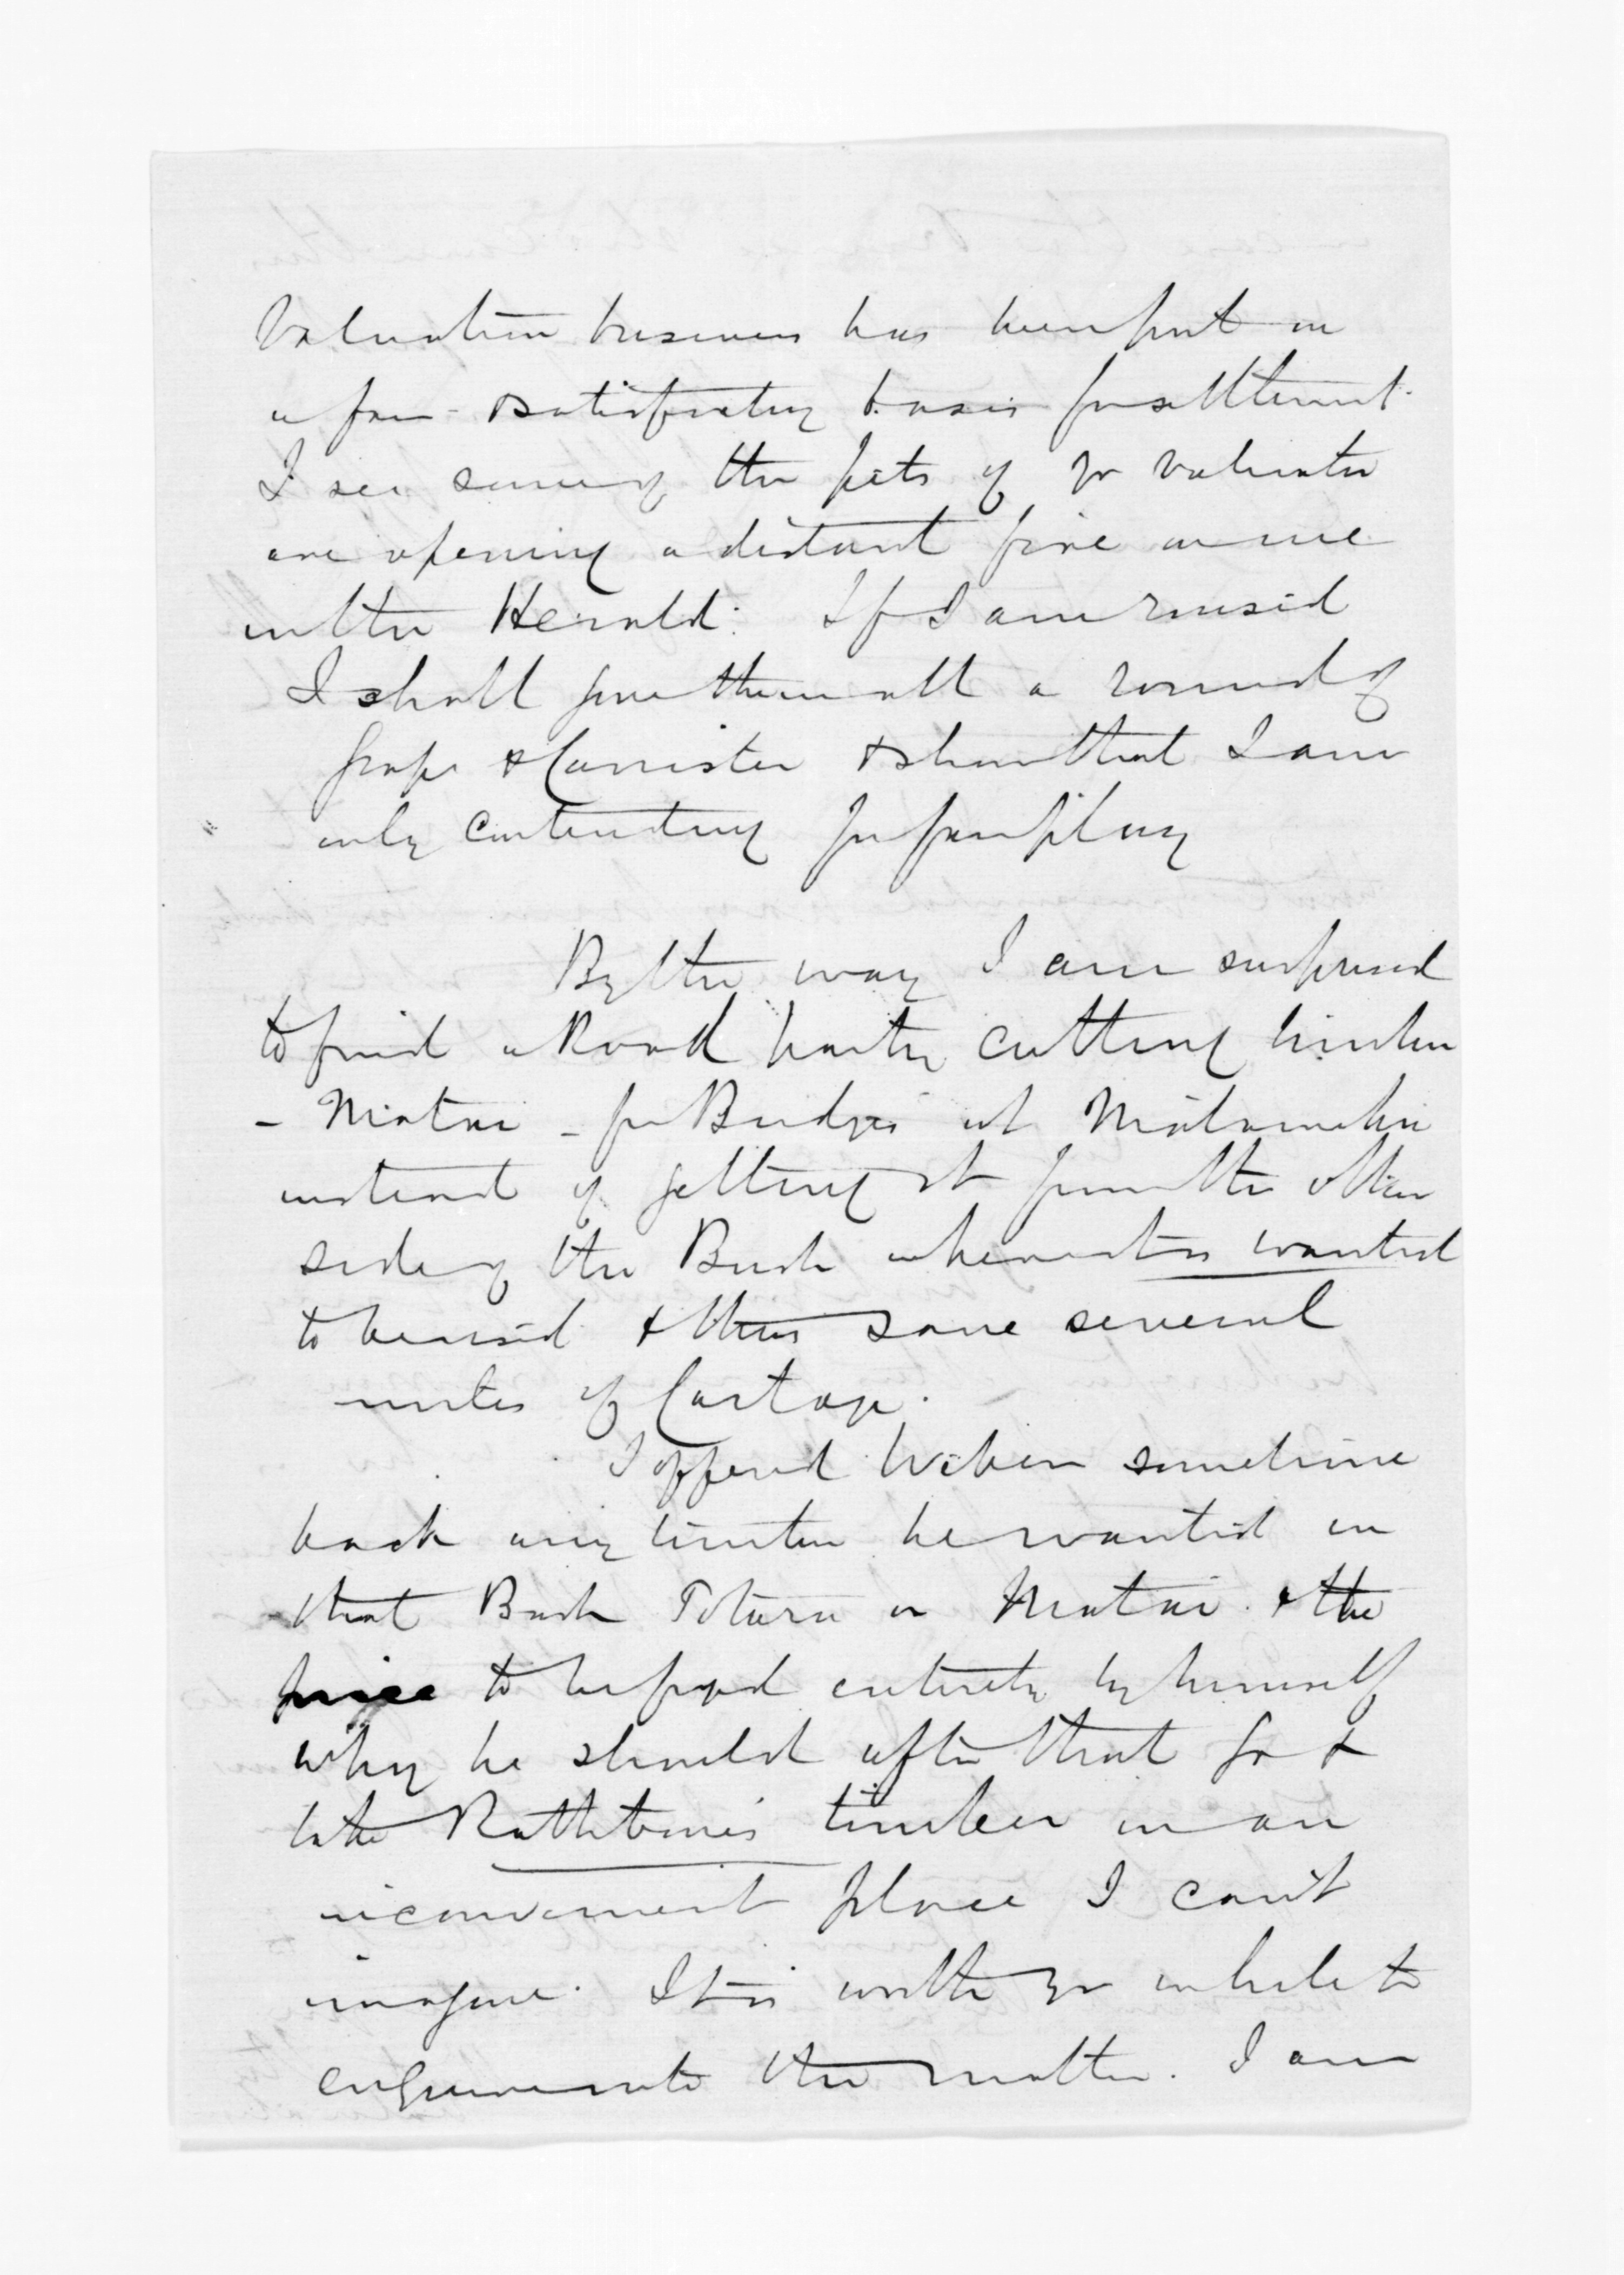 Valuation business has been put on
a fair & satisfactory basis for settlement.
I see some of the pets of yr valuator
are opening a distant fire on me
in the Herald. If I am roused
I shall give them all a round of
grape & Cannister & show that I am
only contending for fair play
By the way I am surprised
to find a Road party cutting timber
- Matai - for Bridges at Matamau
instead of getting it from the other
side of the Bush where it is wanted
to be used & thus save several
miles of Cartage.
I offered Weber sometime
back any timber he wanted in
that Bush Totara or Matai & the
price to be fixed entirely by himself
why he should after that go &
take Rathbone's timber in an
inconvenient place I can't
imagine. It is worth yr while to
enquire into the matter. I am